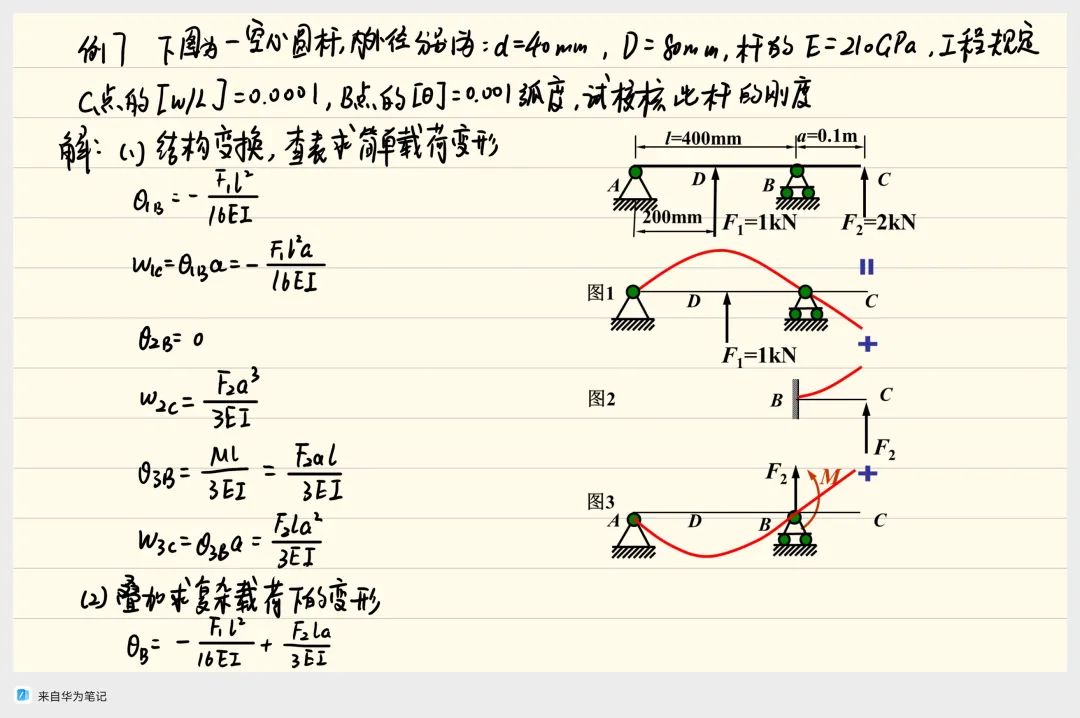 例7 下图为一空心圆杆,内外径分别为:d=40mm, D=80mm,杆的E=210GPa,工程规定
C点的[w/L]=0.0001,B点的[θ]=0.001弧度,试校核此杆的刚度
解: (1) 结构变换,查表求简单载荷变形
θ1B = - F1l²/16EI
w1c=θ1Ba=- F1l²a/16EI
θ2B= 0
w2C= F2a³/3EI
θ3B= Ml/3EI = F2al/3EI
w3c=θ3Ba= F2la²/3EI
(2) 叠加求复杂载荷下的变形
θB= - F1l²/16EI + F2la/3EI
l=400mm a=0.1m
A D B C
200mm F1=1kN F2=2kN
=
图1 D C
F1=1kN
+
图2 B C
F2
+
F2 M
图3 A D B C
来自华为笔记